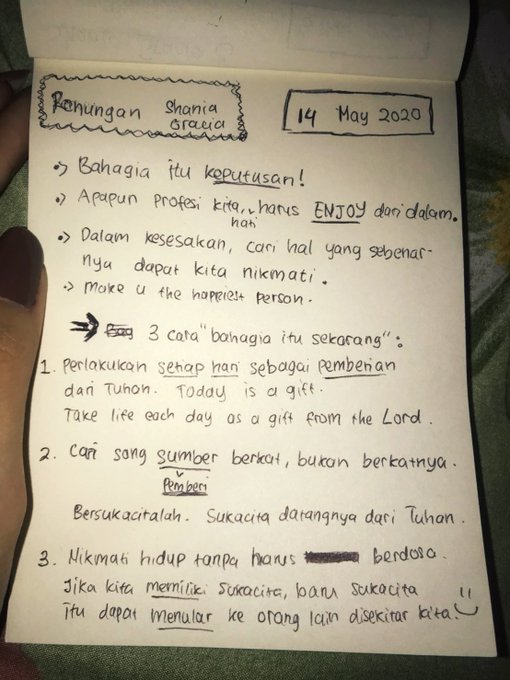 Renungan Shania
Gracia
14 May 2020
•> Bahagia itu keputusan!
•> Apapun profesi kita, hati harus ENJOY dari dalam.
•> Dalam kesesakan, cari hal yang sebenar-
nya dapat kita nikmati.
•> Make u the happiest person.
→ 3 cara "bahagia itu sekarang":
1. Perlakukan setiap hari sebagai pemberian
dari Tuhan. Today is a gift.
Take life each day as a gift from the Lord.
2. Cari sang sumber berkat, bukan berkatnya.
Pemberi
Bersukacitalah. Sukacita datangnya dari Tuhan.
3. Nikmati hidup tanpa harus berdosa.
Jika kita memiliki sukacita, baru sukacita
itu dapat menular ke orang lain disekitar kita.